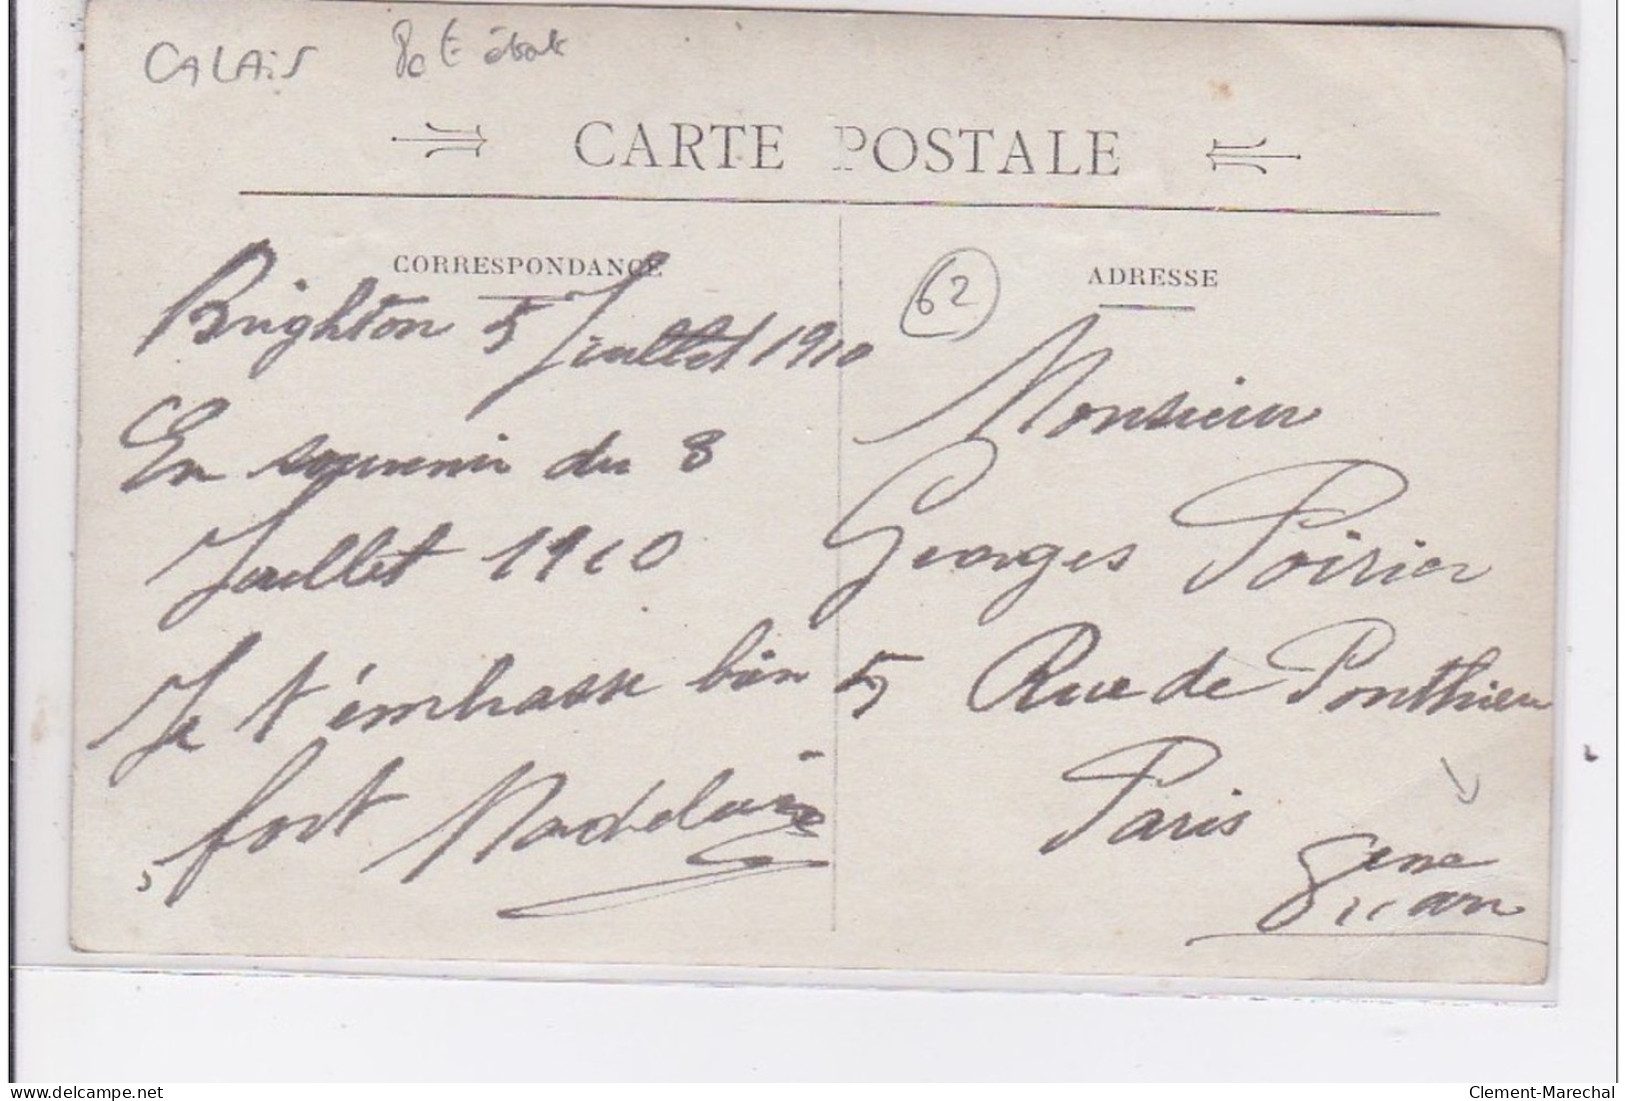 CALAIS
CARTE POSTALE
CORRESPONDANCE
Brighton 5 Juillet 1910
En souvenir du 8
Juillet 1910
Je t'embrasse bien
fort Madeleine
62
ADRESSE
Monsieur
Georges Poirier
5 Rue de Ponthieu
Paris
8eme
arr
Clement-Marechal
www.delcampe.net